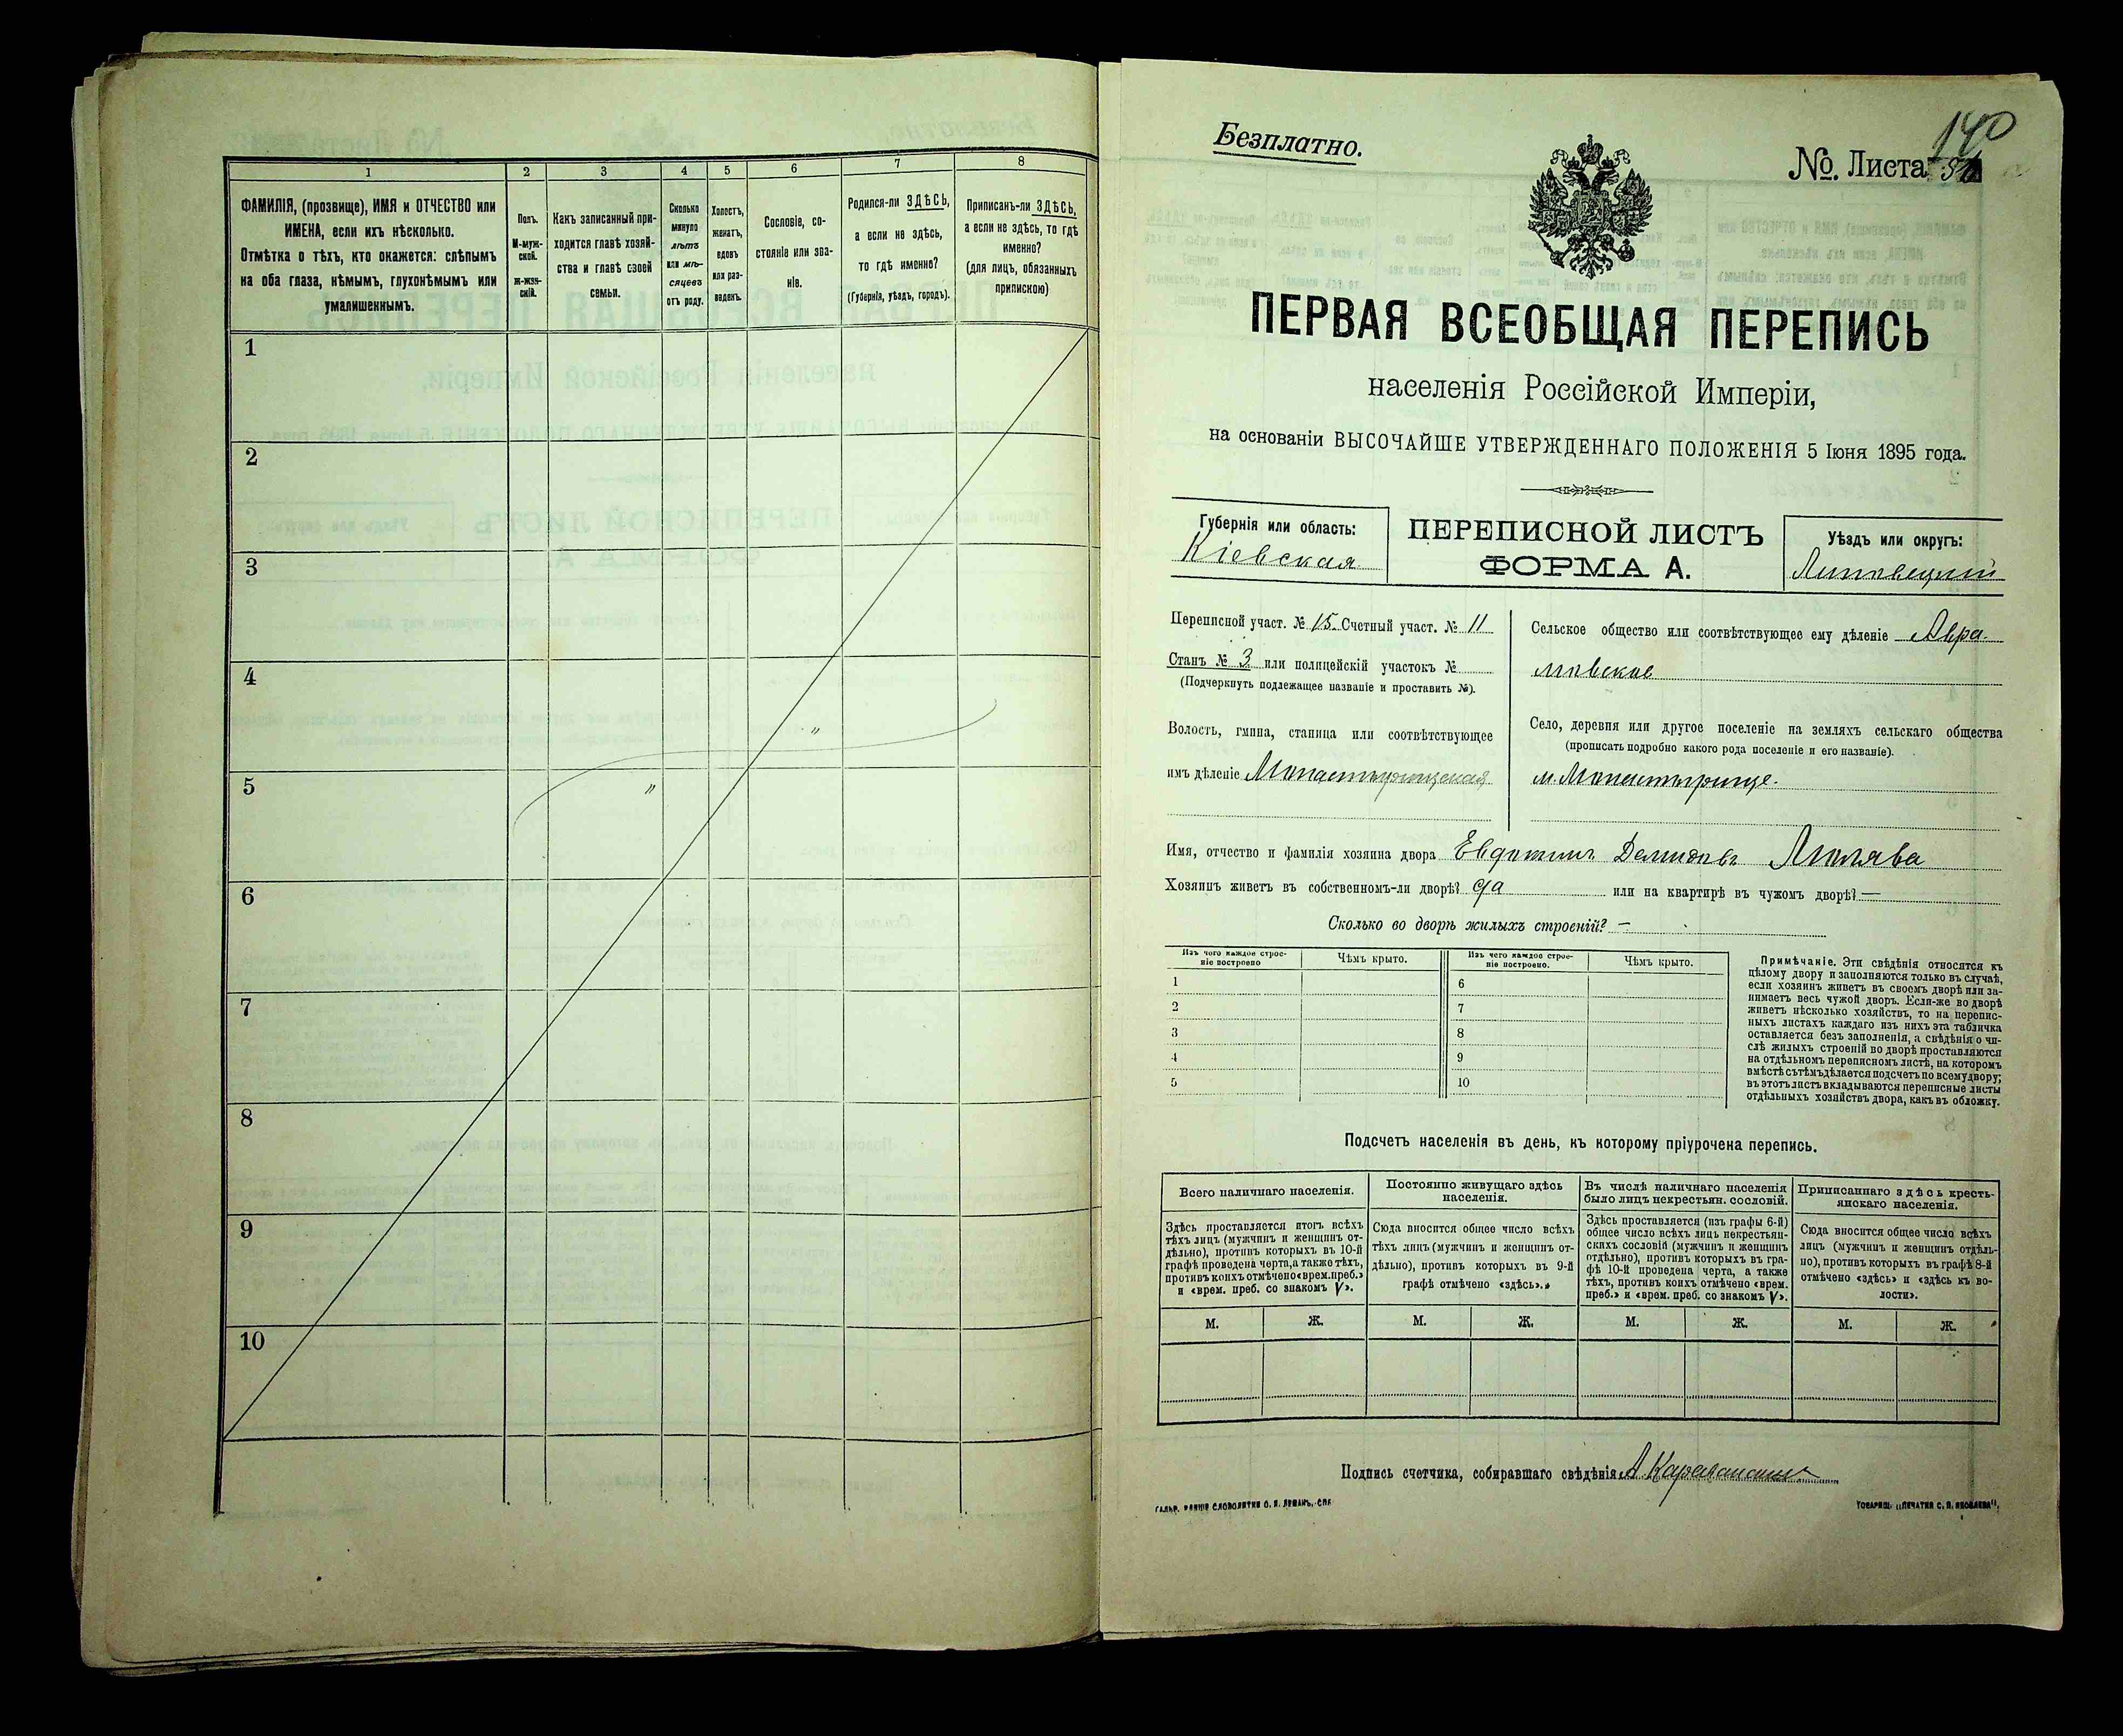 1 2 3 4 5 6 7 8
ФАМИЛІЯ, (прозвище), ИМЯ и ОТЧЕСТВО или
ИМЕНА, если ихъ нѣсколько.
Отмѣтка о тѣхъ, кто окажется: слѣпымъ
на оба глаза, нѣмымъ, глухонѣмымъ или
умалишеннымъ.
Полъ.
М-муж-
ской.
Ж-жен-
скій.
Какъ записанный при-
ходится главѣ хозяй-
ства и главѣ своей
семьи.
Сколько
минуло
лѣтъ
или мѣ-
сяцевъ
отъ роду.
Холостъ,
женатъ,
вдовъ
или раз-
веденъ.
Сословіе, со-
стояніе или зва-
ніе.
Родился-ли ЗДѢСЬ,
а если не здѣсь,
то гдѣ именно?
(Губернія, уѣздъ, городъ).
Приписанъ-ли ЗДѢСЬ,
а если не здѣсь, то гдѣ
именно?
(для лицъ, обязанныхъ
припискою)
1
2
3
4
5
6
7
8
9
10
140
Безплатно.
№. Листа
ПЕРВАЯ ВСЕОБЩАЯ ПЕРЕПИСЬ
населенія Россійской Имперіи,
на основаніи ВЫСОЧАЙШЕ УТВЕРЖДЕННАГО ПОЛОЖЕНІЯ 5 Іюня 1895 года.
Губернія или область:
Кіевская
ПЕРЕПИСНОЙ ЛИСТЪ
ФОРМА А.
Уѣздъ или округъ:
Липовецкій
Переписной участ. № 15. Счетный участ. № 11
Станъ № 3 или полицейскій участокъ №
(Подчеркнуть подлежащее названіе и проставить №).
Волость, гмина, станица или соотвѣтствующее
имъ дѣленіе Монастырищская
Сельское общество или соотвѣтствующее ему дѣленіе Авра-
мовское
Село, деревня или другое поселеніе на земляхъ сельскаго общества
(прописать подробно какого рода поселеніе и его названіе).
м. Монастырище.
Имя, отчество и фамилія хозяина двора Демидовъ
Хозяинъ живетъ въ собственномъ-ли дворѣ? да или на квартирѣ въ чужомъ дворѣ? —
Сколько во дворѣ жилыхъ строеній? —
Изъ чего каждое строе-
ніе построено
Чѣмъ крыто.
Изъ чего каждое строе-
ніе построено.
Чѣмъ крыто.
1 6
2 7
3 8
4 9
5 10
Примѣчаніе. Эти свѣдѣнія относятся къ
цѣлому двору и заполняются только въ случаѣ,
если хозяинъ живетъ въ своемъ дворѣ или за-
нимаетъ весь чужой дворъ. Если-же во дворѣ
живетъ нѣсколько хозяйствъ, то на перепис-
ныхъ листахъ каждаго изъ нихъ эта табличка
оставляется безъ заполненія, а свѣдѣнія о чи-
слѣ жилыхъ строеній во дворѣ проставляются
на отдѣльномъ переписномъ листѣ, на которомъ
вмѣстѣ съ тѣмъ дѣлается подсчетъ по всему двору;
въ этотъ листъ вкладываются переписные листы
отдѣльныхъ хозяйствъ двора, какъ въ обложку.
Подсчетъ населенія въ день, къ которому пріурочена перепись.
Всего наличнаго населенія.
Здѣсь проставляется итогъ всѣхъ
тѣхъ лицъ (мужчинъ и женщинъ от-
дѣльно), противъ которыхъ въ 10-й
графѣ проведена черта, а также тѣхъ,
противъ коихъ отмѣчено «врем. преб.»
и «врем. преб. со знакомъ V».
Постоянно живущаго здѣсь
населенія.
Сюда вносится общее число всѣхъ
тѣхъ лицъ (мужчинъ и женщинъ от-
дѣльно), противъ которыхъ въ 9-й
графѣ отмѣчено «здѣсь».
Въ числѣ наличнаго населенія
было лицъ некрестьян. сословій.
Здѣсь проставляется (изъ графы 6-й)
общее число всѣхъ лицъ некрестьян-
скихъ сословій (мужчинъ и женщинъ
отдѣльно), противъ которыхъ въ гра-
фѣ 10-й проведена черта, а также
тѣхъ, противъ коихъ отмѣчено «врем.
преб.» и «врем. преб. со знакомъ V».
Приписаннаго здѣсь кресть-
янскаго населенія.
Сюда вносится общее число всѣхъ
лицъ (мужчинъ и женщинъ отдѣль-
но), противъ которыхъ въ графѣ 8-й
отмѣчено «здѣсь» и «здѣсь къ во-
лости».
М. Ж. М. Ж. М. Ж. М. Ж.
Подпись счетчика, собиравшаго свѣдѣнія
СЛОВОЛИТНИ О. И. ЛЕМАНЪ, СПБ
ТОВАРИЩ. „ПЕЧАТНЯ С. П. ЯКОВЛЕВА“.